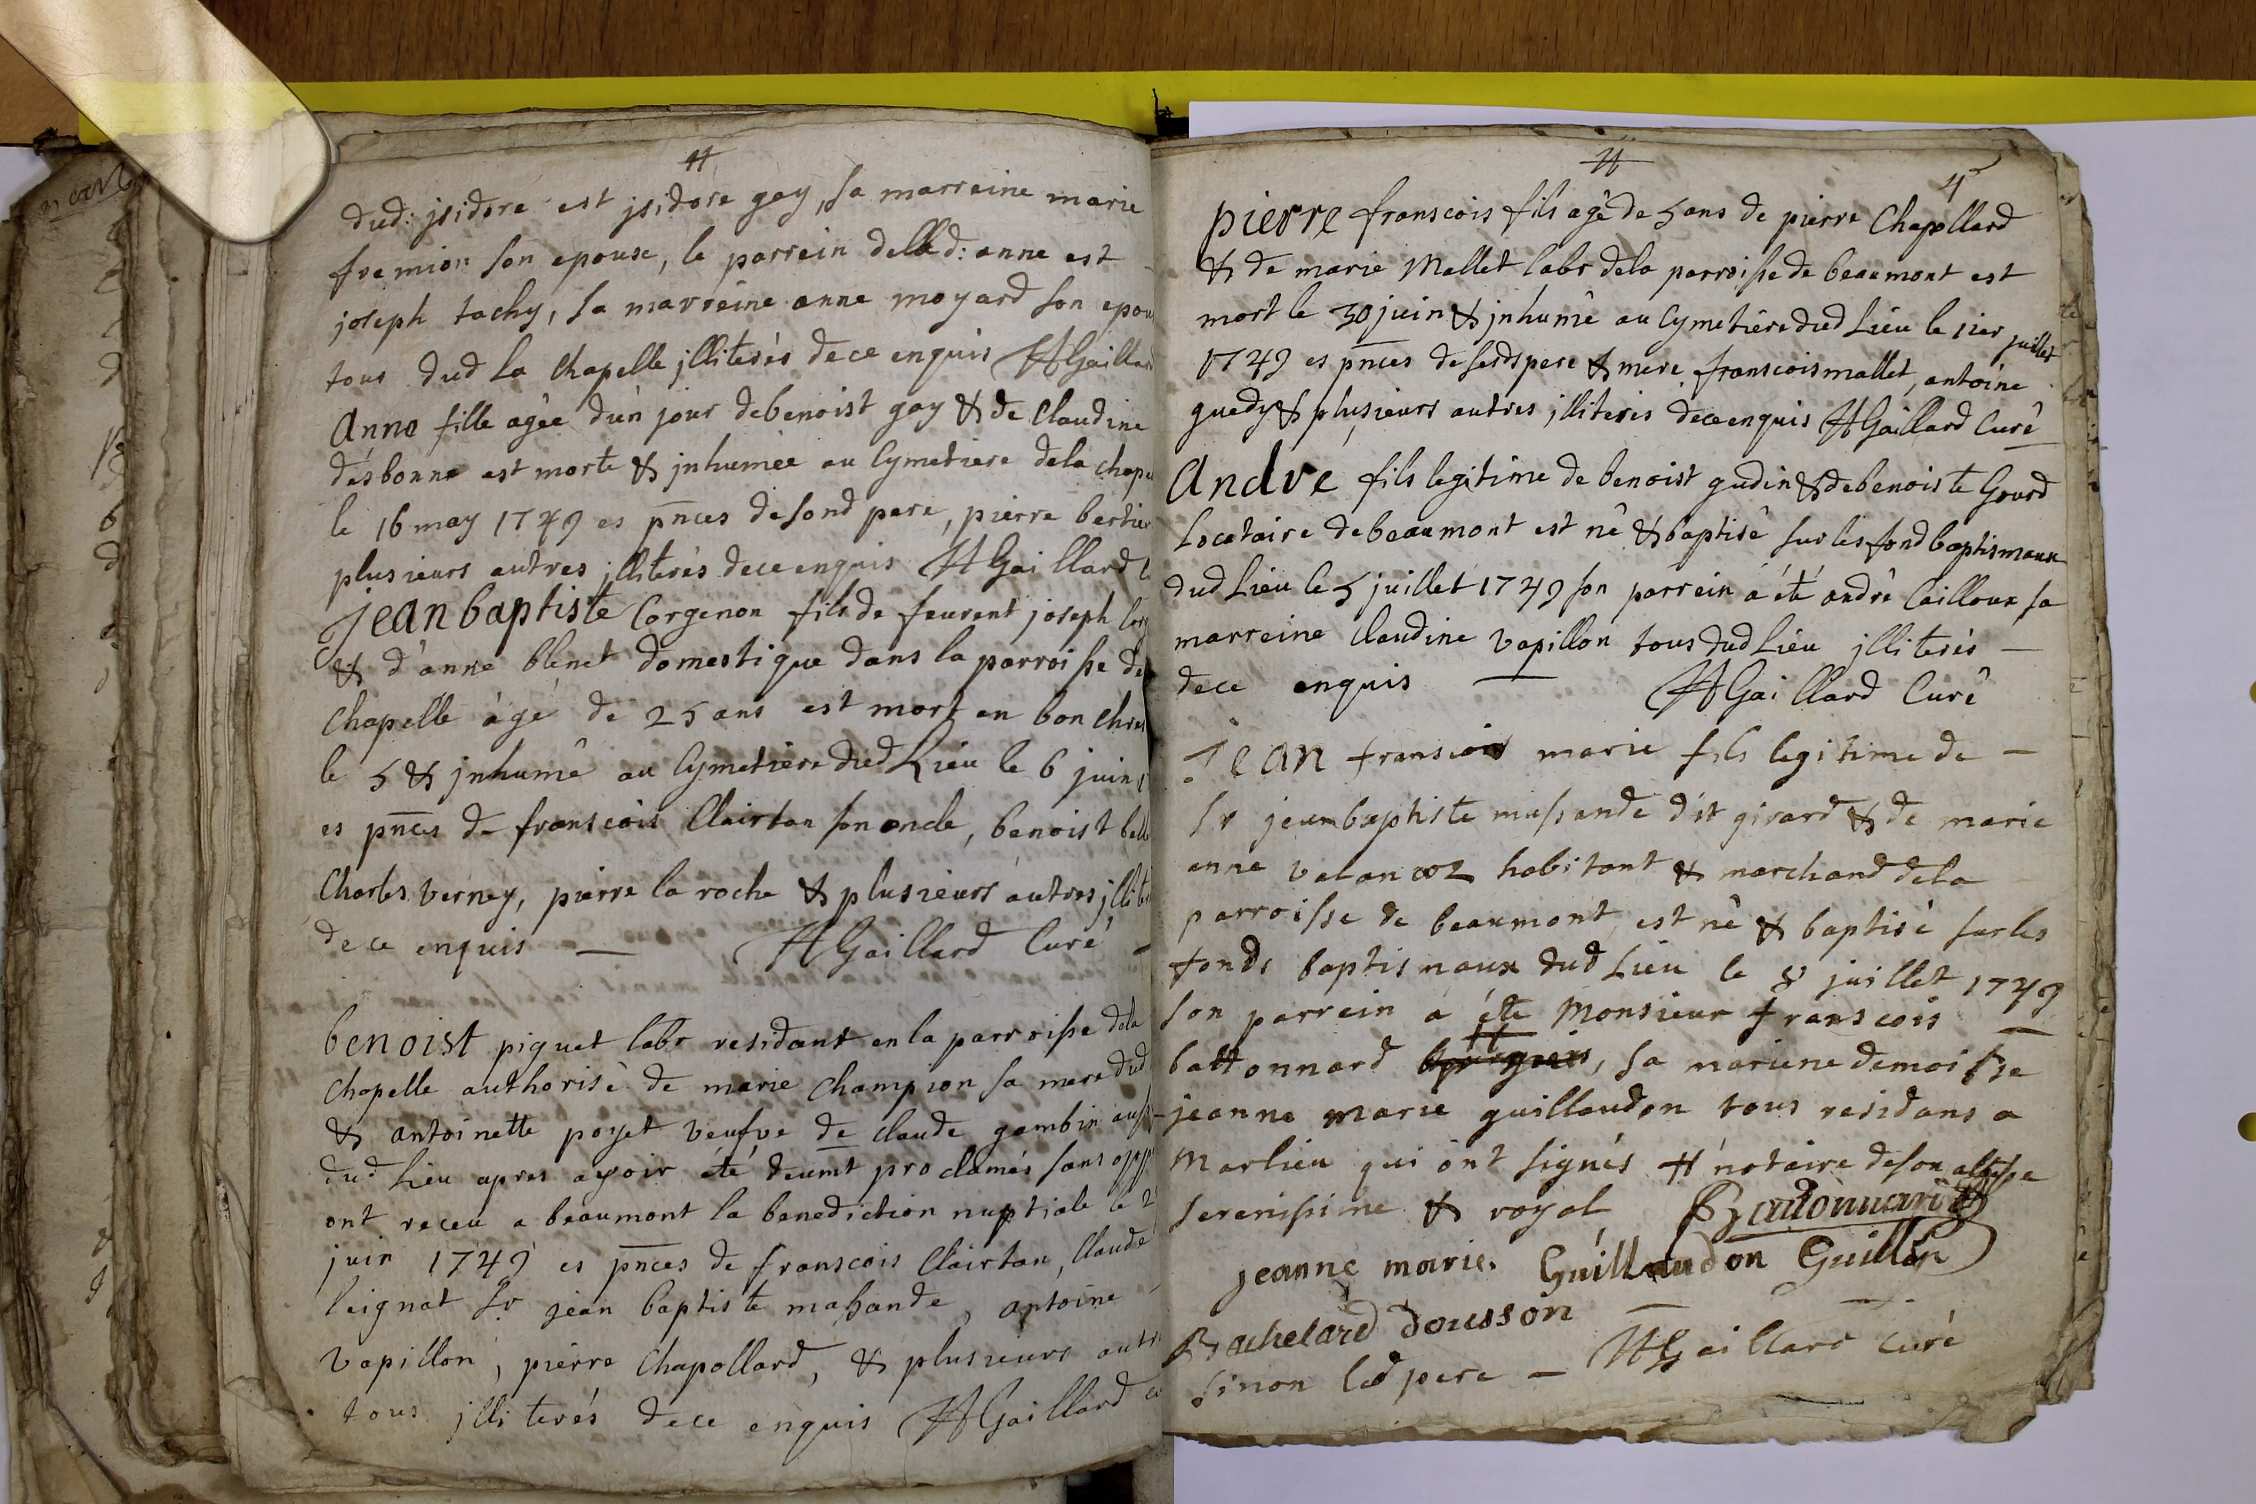 dud: jsidore est jsidore gay, sa marreine marie
fremion son epouse, le parrein dellad: anne est
joseph tachy, sa marreine anne moyard son epou
tous dud la chapelle jlliterés dece enquis HGaillar
Anne fille agée d'un jour debenoist gay & de Claudine
desbonne est morte & jnhumée au Cymetiere dela chape
le 16 may 1749 es pnces desond pere, pierre bertier
plusieurs autres jlliterés dece enquis HGaillard
jean baptiste Corgenon fils de feurent joseph Corg
& d'anne blenet domestique dans la parroisse de
chapelle àgé de 25 ans est mort en bon chres
le 5 & jnhumé au Cymetiere dud Lieu le 6 juin
es pnces de franscois Clairtan son oncle, benoist belle
Charles verney, pierre la roche & plusieurs autres jllite
de ce enquis — HGaillard Curé
benoist piquet labr residant en la parroisse dela
Chapelle authorisé de marie Champion sa mere dud
& antoinette poyet veufve de claude gambin aussi
dud Lieu apres avoir été deumt proclamés sans opp
ont receu a beaumont la benediction nuptiale le 2
juin 1749 es pnces de franscois Clairtan, Claude
leignat Sr jean baptiste massande, antoine
vapillon, pierre Chapollard, & plusieurs autr
tous jlliterés dece enquis HGaillard cu
4
pierre franscois fils agé de 5 ans de pierre Chapollard
& de marie Mallet labr dela parroisse de beaumont est
mort le 30 juin & jnhumé au Cymetiere dud Lieu le 1ier juillet
1749 es pnces de sesds pere & mere franscois mallet, antoine
guedy & plusieurs autres jlliteris dece enquis HGaillard Curé
Andre fils legitime de benoist gudin & debenoiste Gourd
Locataire debeaumont est né & baptisé sur les fond baptismaux
dud Lieu le 5 juillet 1749 son parrein a été andré Cailloux sa
marreine claudine vapillon tous dud Lieu jlliterés —
dece enquis — HGaillard Curé
Jean franscois marie fils legitime de —
Sr jeanbaptiste massande dit girard & de marie
anne valancoz habitant & marchand dela
parroisse de beaumont, est né & baptisé sur les
fonds baptismaux dud Lieu le 8 juillet 1749
son parrein a été Monsieur franscois —
battonnard bourgeois, sa mariene demoisse
jeanne marie guillaudon tous residans a
Marlieu qui ont signés # notaire de son altesse
serenissime & royal Battonnard
jeanne marie. Guillaudon Guillon
Bachelard dousson
sinon led pere — HGaillard Curé